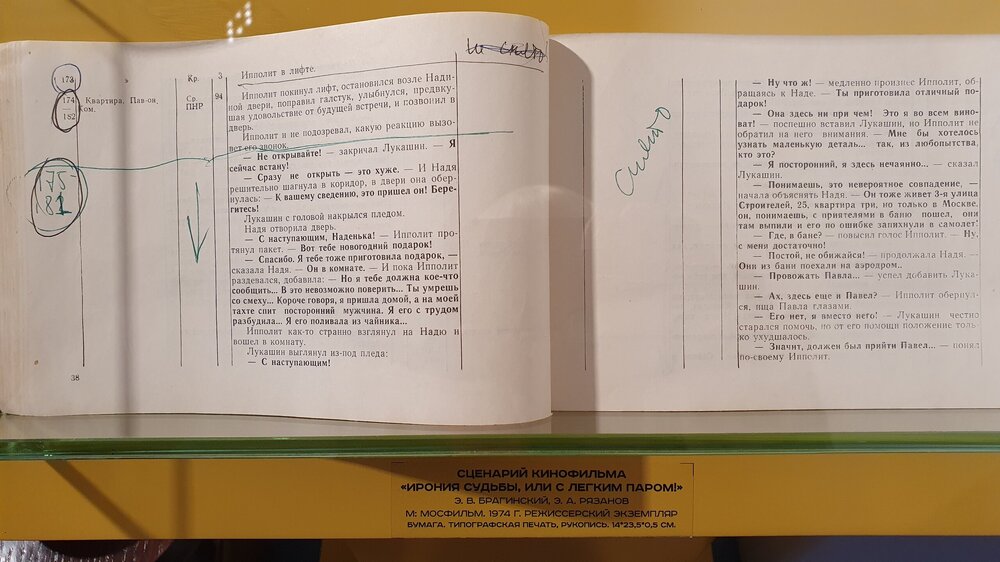 173
Кр.
3
Ипполит в лифте.
174
—
182
Квартира Пав-ов,
ком.
Ср.
ПНР
94
Ипполит покинул лифт, остановился возле Нади-
ной двери, поправил галстук, улыбнулся, предвку-
шая удовольствие от будущей встречи, и позвонил в
дверь.
Ипполит и не подозревал, какую реакцию вызо-
вет его звонок.
— Не открывайте! — закричал Лукашин. — Я
сейчас встану!
— Сразу не открыть — это хуже. — И Надя
решительно шагнула в коридор, в двери она обер-
нулась: — К вашему сведению, это пришел он! Бере-
гитесь!
Лукашин с головой накрылся пледом.
Надя отворила дверь.
— С наступающим, Наденька! — Ипполит про-
тянул пакет. — Вот тебе новогодний подарок!
— Спасибо. Я тебе тоже приготовила подарок, —
сказала Надя. — Он в комнате. — И пока Ипполит
раздевался, добавила: — Но я тебе должна кое-что
сообщить... В это невозможно поверить... Ты умрешь
со смеху... Короче говоря, я пришла домой, а на моей
тахте спит посторонний мужчина. Я его с трудом
разбудила... Я его поливала из чайника...
Ипполит как-то странно взглянул на Надю и
вошел в комнату.
Лукашин выглянул из-под пледа:
— С наступающим!
175-
181
38
Снято
— Ну что ж! — медленно произнес Ипполит, об-
ращаясь к Наде. — Ты приготовила отличный по-
дарок!
— Она здесь ни при чем! Это я во всем вино-
ват! — поспешно вставил Лукашин, но Ипполит не
обратил на него внимания. — Мне бы хотелось
узнать маленькую деталь... так, из любопытства,
кто это?
— Я посторонний, я здесь нечаянно... — сказал
Лукашин.
— Понимаешь, это невероятное совпадение, —
начала объяснять Надя. — Он тоже живет 3-я улица
Строителей, 25, квартира три, но только в Москве.
он, понимаешь, с приятелями в баню пошел, они
там выпили и его по ошибке запихнули в самолет!
— Где, в бане? — повысил голос Ипполит. — Ну,
с меня достаточно!
— Постой, не обижайся! — продолжала Надя. —
Они из бани поехали на аэродром..
— Провожать Павла... — успел добавить Лука-
шин.
— Ах, здесь еще и Павел? — Ипполит обернул-
ся, ища Павла глазами.
— Его нет, я вместо него! — Лукашин честно
старался помочь, но от его помощи положение толь-
ко ухудшалось.
— Значит, должен был прийти Павел... — понял
по-своему Ипполит.
СЦЕНАРИЙ КИНОФИЛЬМА
«ИРОНИЯ СУДЬБЫ, ИЛИ С ЛЕГКИМ ПАРОМ!»
Э. В. БРАГИНСКИЙ, Э. А. РЯЗАНОВ
М: МОСФИЛЬМ. 1974 Г. РЕЖИССЕРСКИЙ ЭКЗЕМПЛЯР
БУМАГА, ТИПОГРАФСКАЯ ПЕЧАТЬ, РУКОПИСЬ. 14*23,5*0,5 СМ.